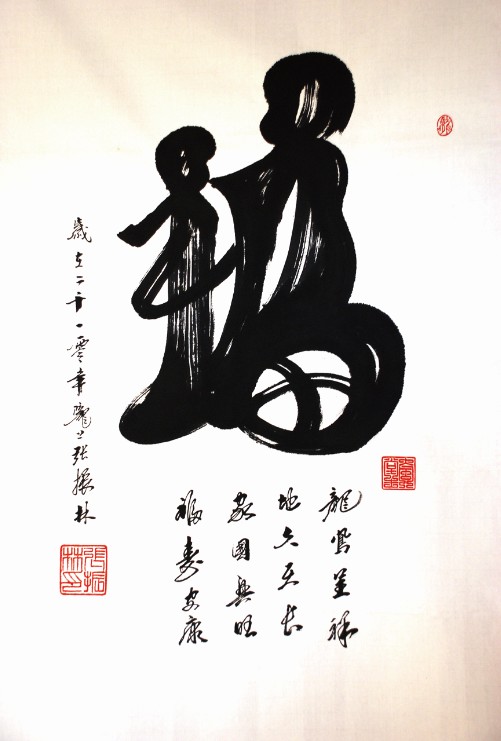 福
龍鳳呈祥
地久天長
家國興旺
福壽安康
歲在二千一零年隴上张振林
張振林印